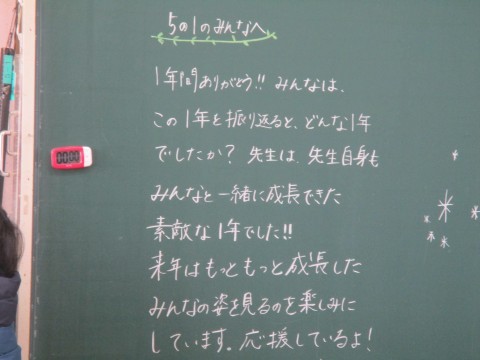 5の1のみんなへ
1年間ありがとう!! みんなは、
この1年を振り返ると、どんな1年
でしたか? 先生は、先生自身も
みんなと一緒に成長できた
素敵な1年でした!!
来年はもっともっと成長した
みんなの姿を見るのを楽しみに
しています。応援しているよ!
00:00